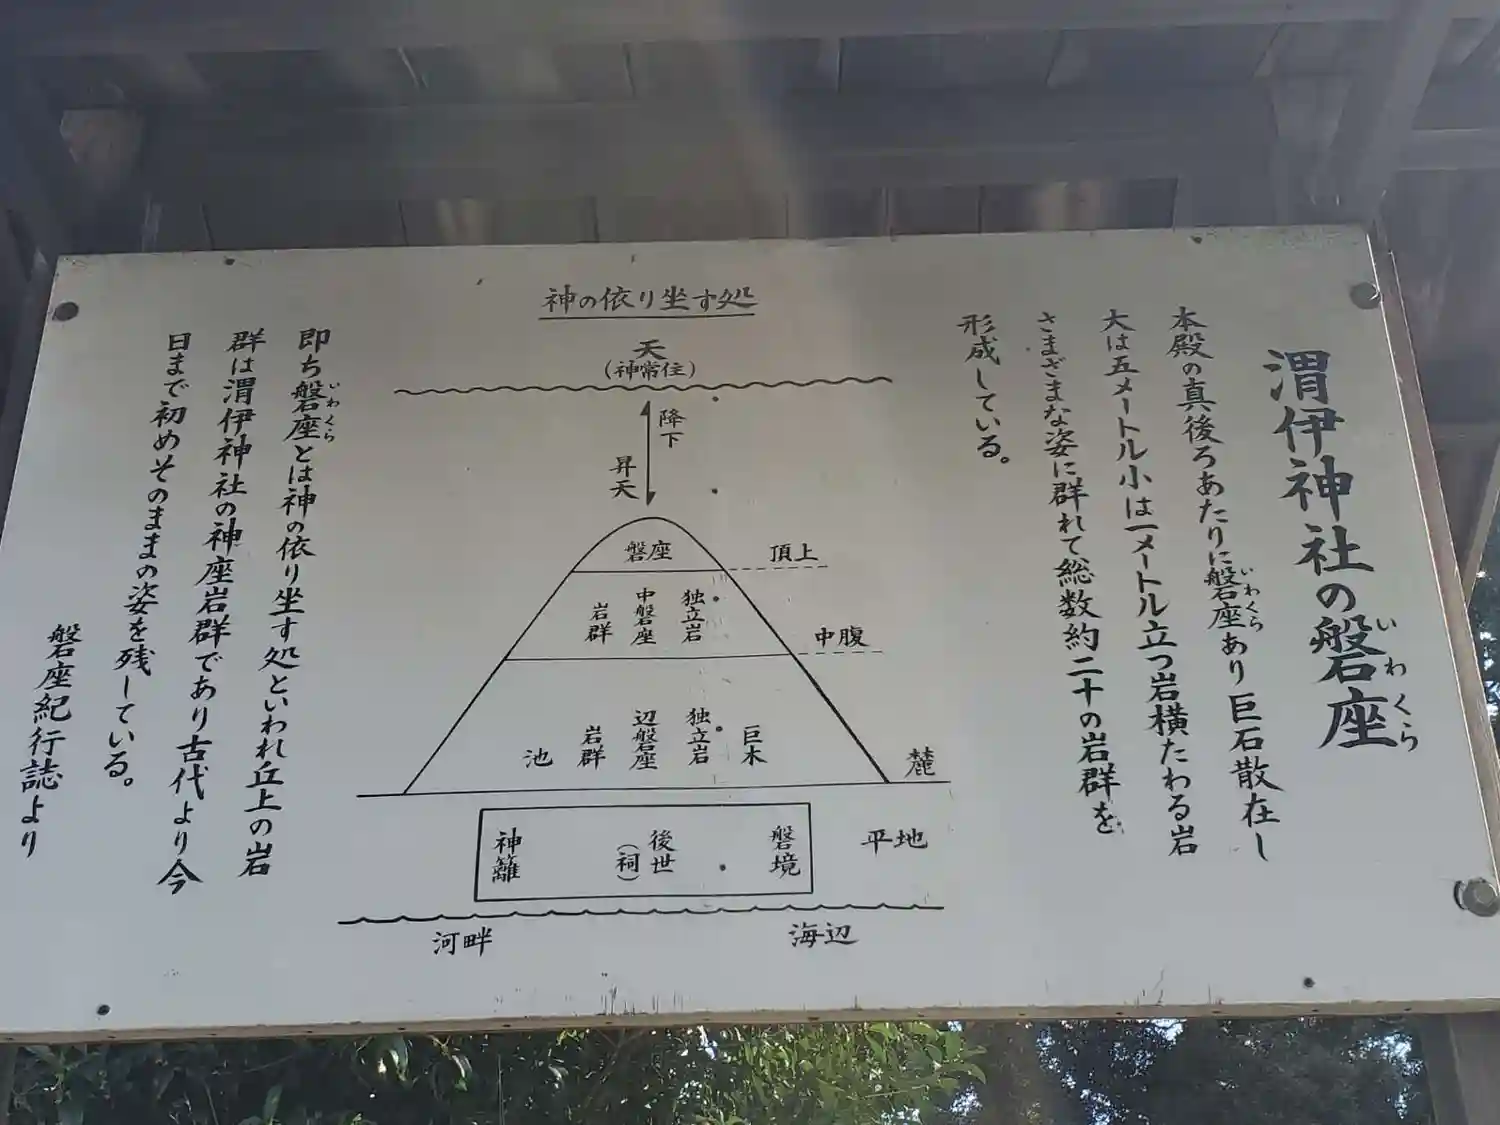 渭伊神社の磐座
いわくら
本殿の真後ろあたりに磐座あり巨石散在し
いわくら
大は五メートル小は一メートル立つ岩横たわる岩
さまざまな姿に群れて総数約二十の岩群を
形成している。
神の依り坐す処
天
(神常住)
降下
昇天
磐座
頂上
独立岩
中磐座
岩群
中腹
巨木
独立岩
辺磐座
岩群
池
麓
磐境
後世
(祠)
神籬
平地
海辺
河畔
即ち磐座とは神の依り坐す処といわれ丘上の岩
いわくら
群は渭伊神社の神座岩群であり古代より今
日まで初めそのままの姿を残している。
磐座紀行誌より